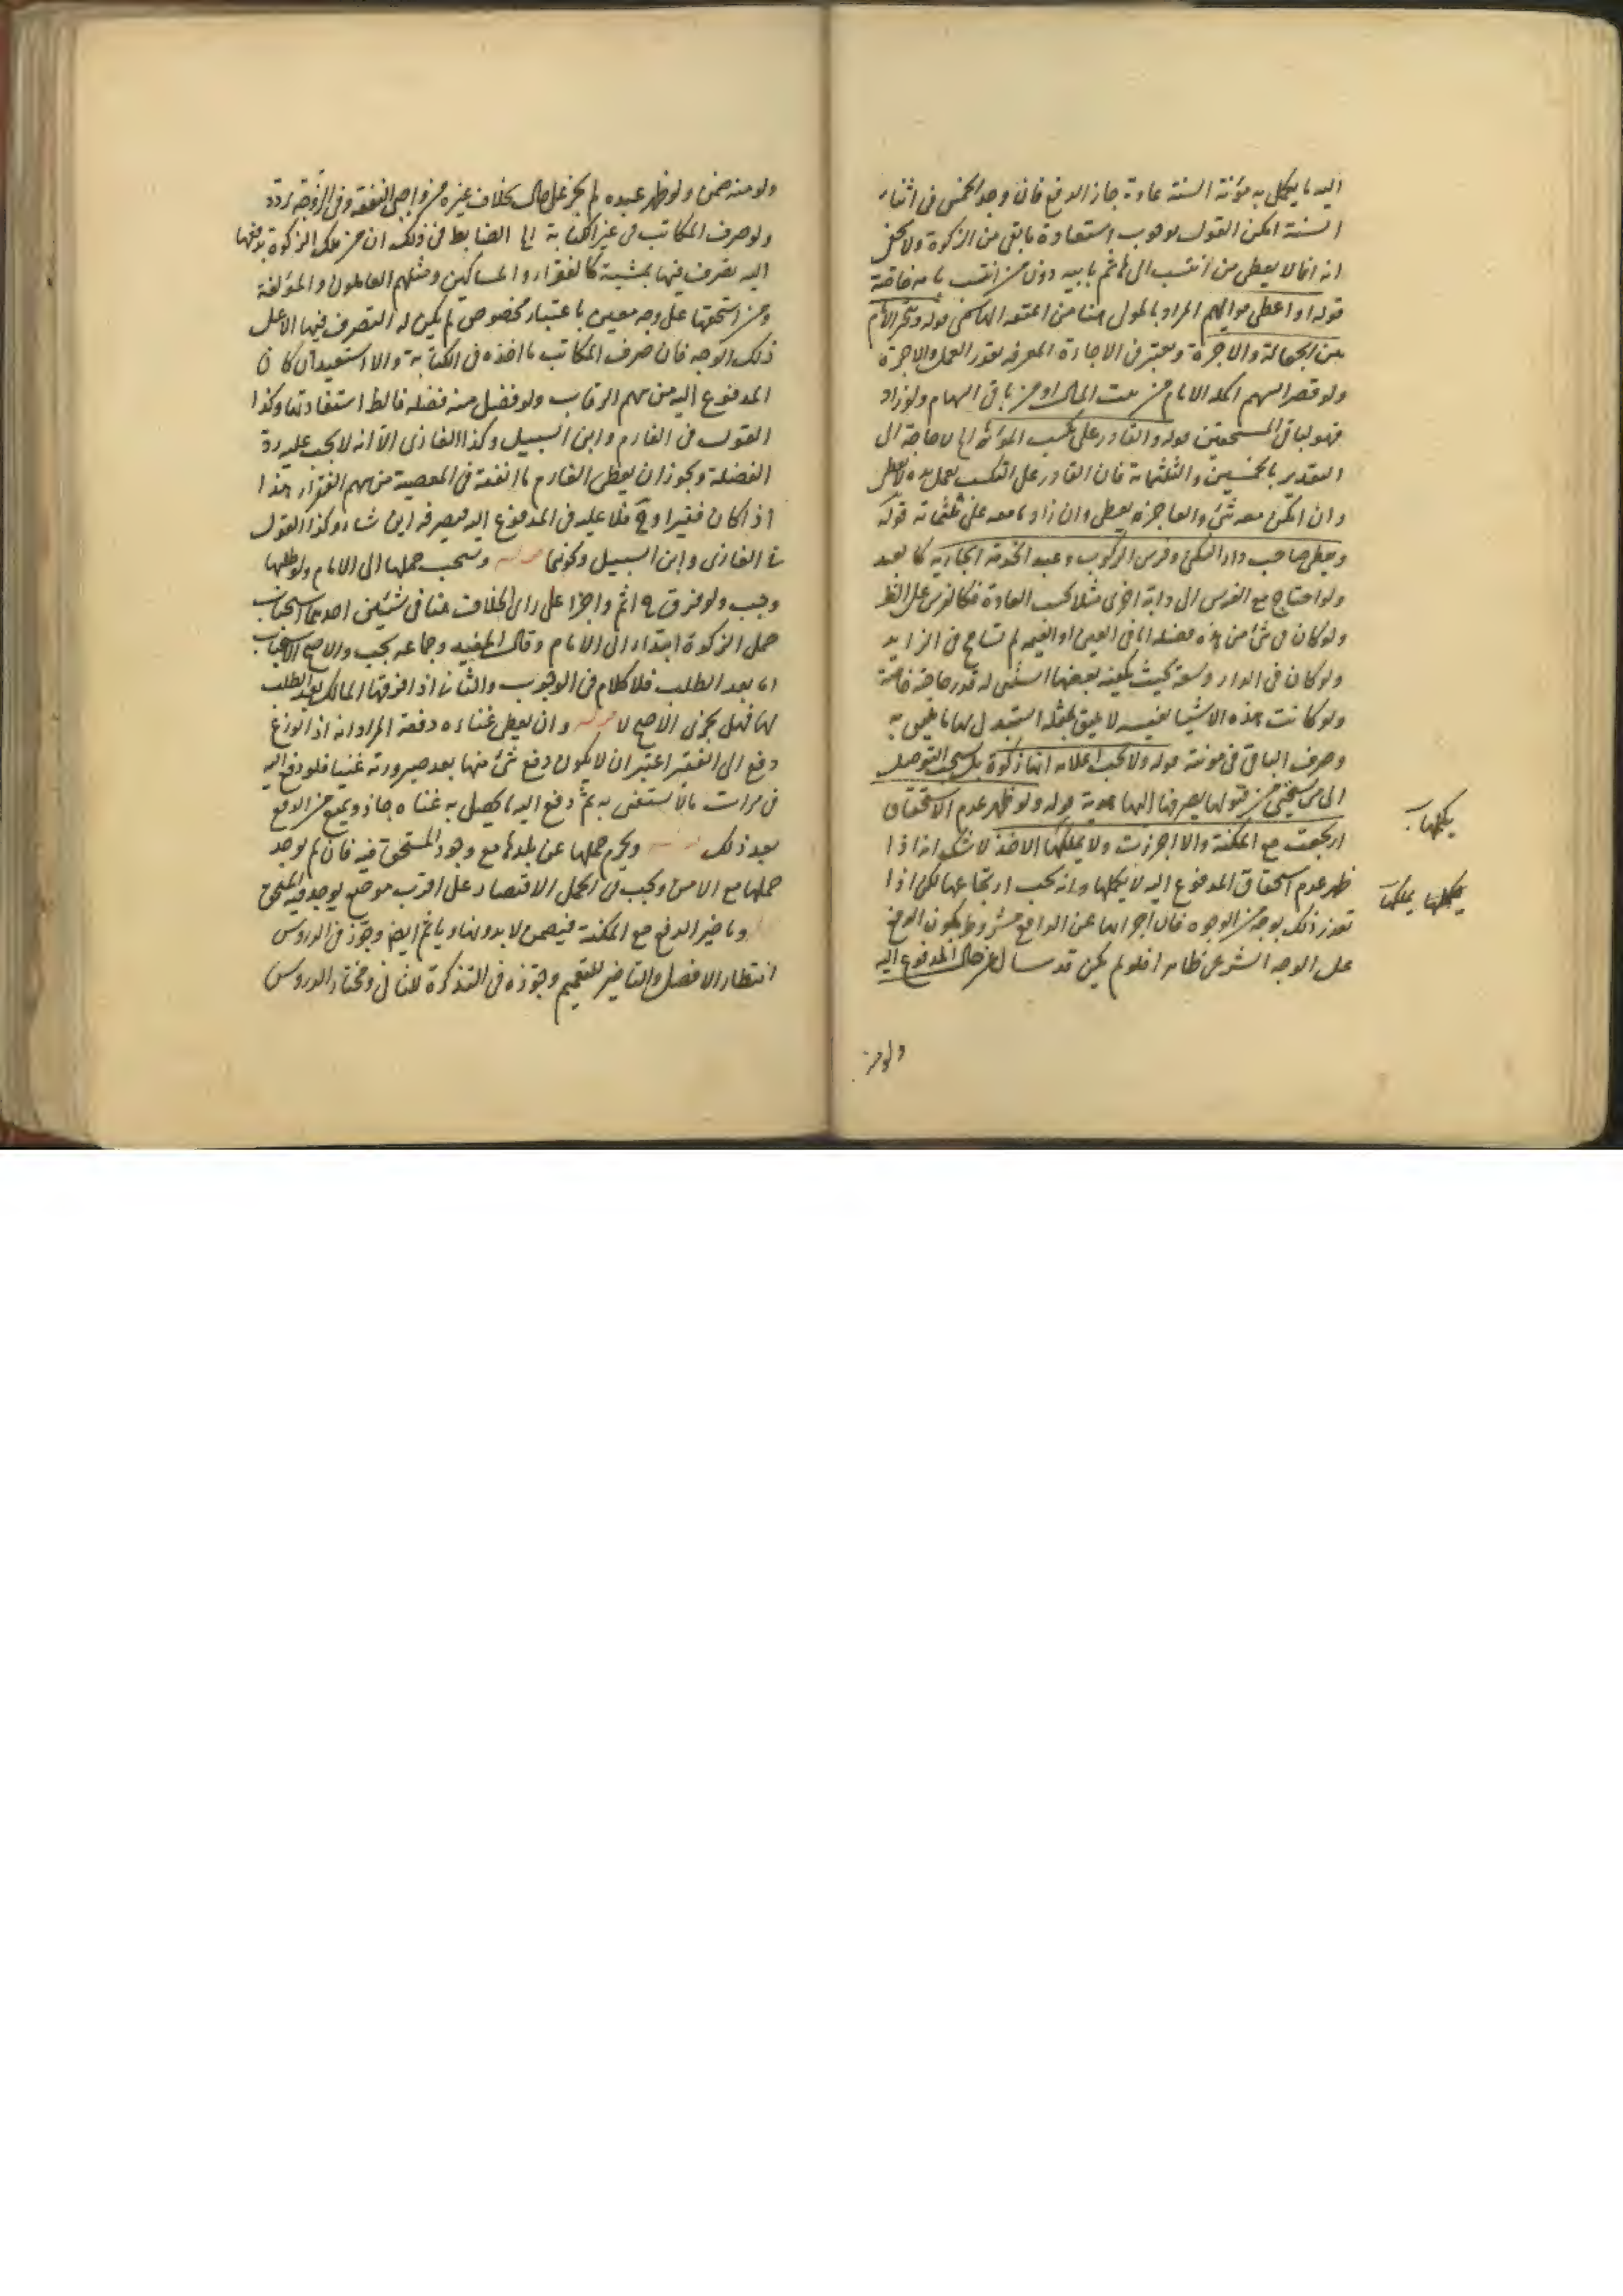 اليه ما يكمل به مؤنة السنة عادة جاز الدفع فان وجد الخمس فى اثناء
السنة امكن القول بوجوب استعادة ما بقى من الزكوة ولا يخفى
انه انما لا يعطى من انتسب الى هاشم بابيه دون من انتسب بامه خاصة
قوله او اعطى مواليهم المراد بالمولى هنا من اعتقه الهاشمى قوله ويتخير الامام
بين الجعالة والاجرة ويعتبر فى الاجارة المعرفه بقدر العمل والاجرة
ولو قصر السهم اكمله الامام من بيت المال او من باقى السهام ولو زاد
فهو لباقى المستحقين قوله والقادر على تكسب المؤنة الخ لا حاجة الى
التقدير بالخمسين والثلثمائة فان القادر على التكسب بعمل يده لا يعطى
وان لم يكن معه شئ والعاجز يعطى وان زاد ما معه على ثلثمائة قوله
ويعطى صاحب دار السكنى وفرس الركوب وعبد الخدمة الجارية كالعبد
ولو احتاج مع الفرس الى دابة اخرى مثلا كسب العادة فكالفرس على الظ
ولو كان فى شئ من هذه فضلة اما فى العين او القيمه لم تسامح فى الزايد
ولو كان فى الدار وسعة بحيث يكفيه بعضها استثنى له قدر حاجته خاصة
ولو كانت هذه الاشيا نفيسه لا يليق بمثله استبدل بها ما يليق به
وصرف الباقى فى مؤنته قوله ولا يجب اعلامه انها زكوة بل يستحب التوصل
الى من يستحيى من قبولها بصرفها اليه هدية قوله ولو ظهر عدم الاستحقاق
ارتجعت مع المكنة والا اجزءت ولا يملكها الاخذ لا شك انه اذا
ظهر عدم استحقاق المدفوع اليه لا يملكها وانه يجب ارتجاعها لكن اذا
تعذر ذلك بوجه من الوجوه فان اجزاءها عن الدافع مشروط بكون الدفع
على الوجه الشرعى ظاهرا فلو لم يكن قد سال عن حال المدفوع اليه
يملكها
يملكها يملكها
ولو منه
ولو منه ضمن ولو ظهر عبده لم يجز على حال بخلاف غيره من واجبى النفقه وفى الزوجة تردد
ولو صرف المكاتب فى غير الكتابة الخ الضابط فى ذلك ان من ملك الزكوة بدفعها
اليه يصرف فيها بمشيته كالفقراء والمساكين ومثلهم العاملون والمؤلفة
ومن استحقها على وجه معين باعتبار مخصوص لم يكن له التصرف فيها الا على
ذلك الوجه فان صرف المكاتب ما اخذه فى الكتابة والا استعيد ان كان
المدفوع اليه من سهم الرقاب ولو فضل منه فضله فالظ استعادتها وكذا
القول فى الغارم وابن السبيل وكذا الغازى الا انه لا يجب عليه رد
الفضلة ويجوز ان يعطى الغارم ما انفقه فى المعصية من سهم الفقراء هذا
اذا كان فقيرا وح فلا عليه فى المدفوع اليه فيصرفه اين شاء وكذا القول
فى الغازى وابن السبيل ونحوهما ويستحب حملها الى الامام ولو طلبها
وجب ولو فرق ح اثم واجزا على راى الخلاف هنا فى شيئين احدهما استحباب
حمل الزكوة ابتداء الى الامام وقال المفيد وجماعه يجب والاصح الاستحباب
اما بعد الطلب فلا كلام فى الوجوب والثانى اذا فرقها المالك بعد الطلب
لها فهل يجزى الاصح لا وان يعطى غناءه دفعة المراد انه اذا وزع
دفع الى الفقير اعتبر ان لا يكون دفع شئ منها بعد صيرورته غنيا فلو دفع اليه
فى مرات ما لا يستغنى به ثم دفع اليه ما يحصل به غناه جاز ويمنع من الدفع
بعد ذلك ويحرم حملها عن بلدها مع وجود المستحق فيه فان لم يوجد
حملها مع الامن ويجب فى الحمل الاقتصار على اقرب موضع يوجد فيه المستحق
وتاخير الدفع مع المكنة فيضمن لا بدونها وياثم ايضا وجوز فى الدروس
انتظار الافضل والتاخير للتعميم وجوزه فى التذكرة للثانى ومختار الدروس